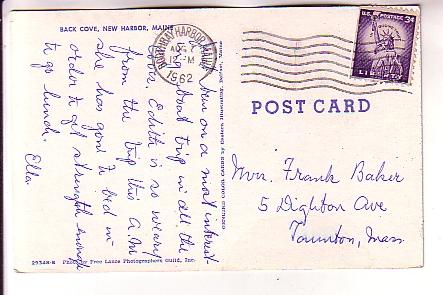 BACK COVE, NEW HARBOR, MAINE
BOOTHBAY HARBOR, MAINE
AUG 7
12 M
1962
U.S. POSTAGE 3¢
LIBERTY
POST CARD
on a most interest-
boat trip in all the
Edith is so weary
from the trip this A.M.
she has gone to bed in
order to get strength enough
to go lunch.
Ella
Mrs. Frank Baker
5 Dighton Ave
Taunton, Mass.
29348-B Photo by Free Lance Photographers Guild, Inc.